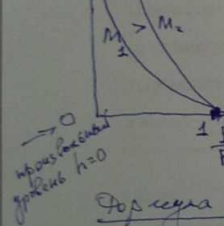 M₁ > M₂
0
1
произвольный
уровень h=0
Формула